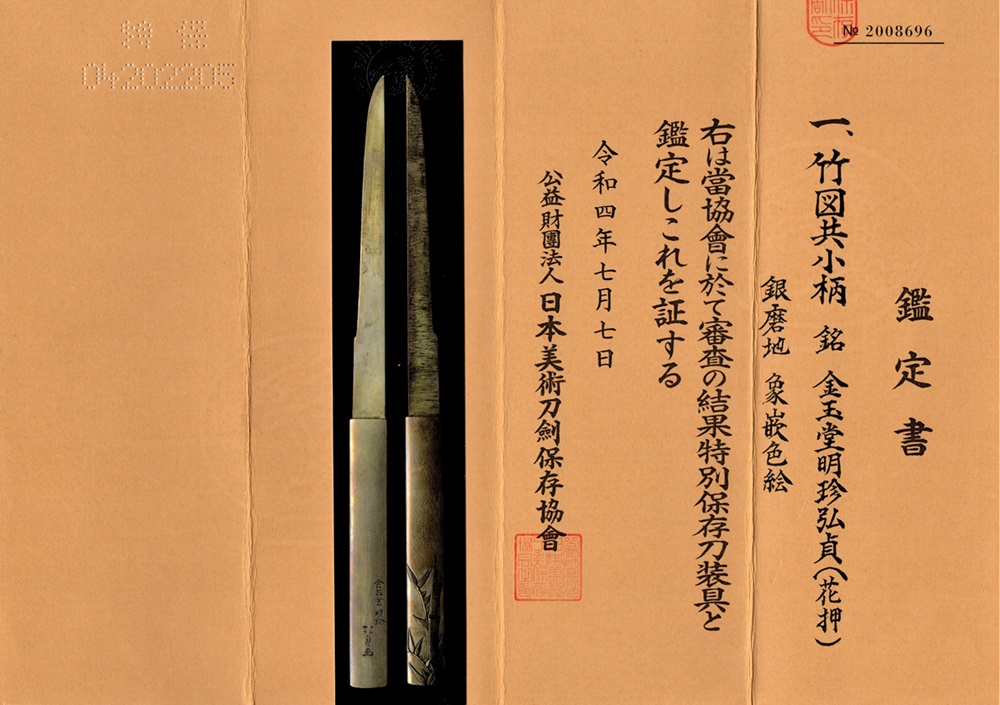 № 2008696
鑑定書
一、竹図共小柄 銘 金玉堂明珍弘貞(花押)
銀磨地 象嵌色絵
右は當協會に於て審査の結果特別保存刀装具と
鑑定しこれを証する
令和四年七月七日
公益財團法人 日本美術刀劍保存協會
特保
04202205